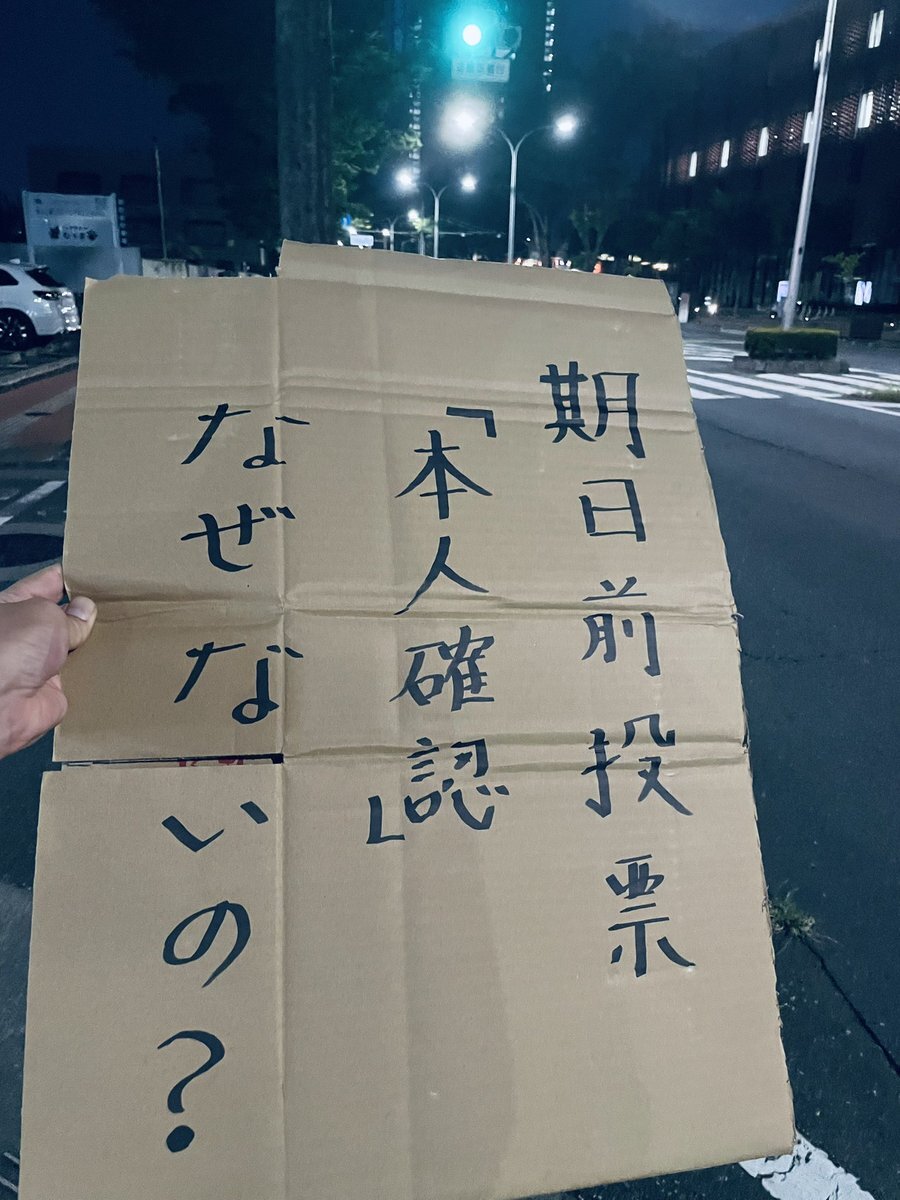 期日前投票
「本人確認」
なぜないの？